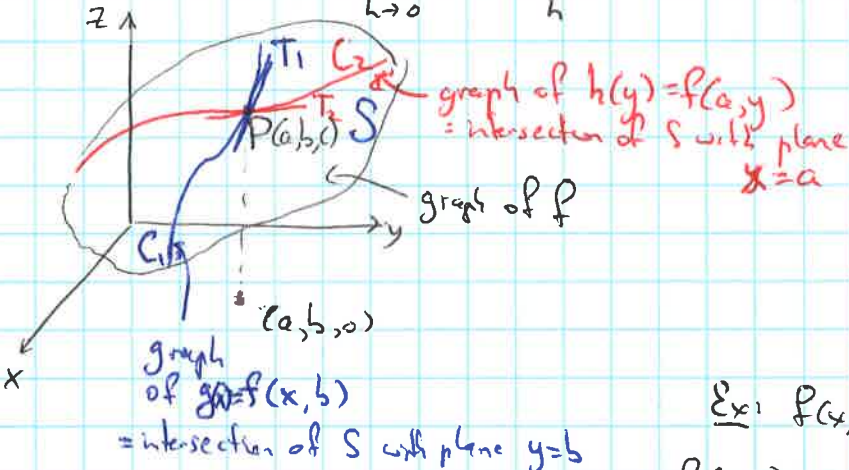 h→0
h
z
T₁
C₂
T₂
P(a,b,c)
S
graph of h(y)=f(a,y)
= intersection of S with plane
x=a
graph of f
y
C₁
(a,b,0)
x
graph
of g(x)=f(x,b)
= intersection of S with plane y=b
Ex: f(x,